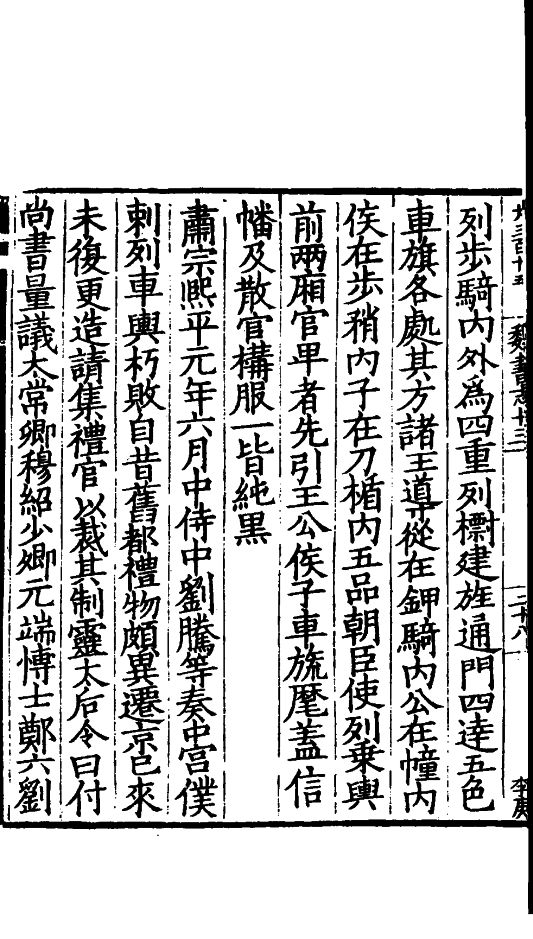 魏書志十三
二十八
李庚
列步騎內外為四重列標建旌通門四達五色
車旗各處其方諸王導從在鉀騎內公在幢內
侯在步矟內子在刀楯內五品朝臣使列乗輿
前兩廂官卑者先引王公侯子車旒麾蓋信
幡及散官構服一皆純黒
肅宗熙平元年六月中侍中劉騰等奏中宮僕
刺列車輿朽敗自昔舊都禮物頗異遷京已來
未復更造請集禮官以裁其制靈太后令曰付
尚書量議太常卿穆紹少卿元端博士鄭六劉